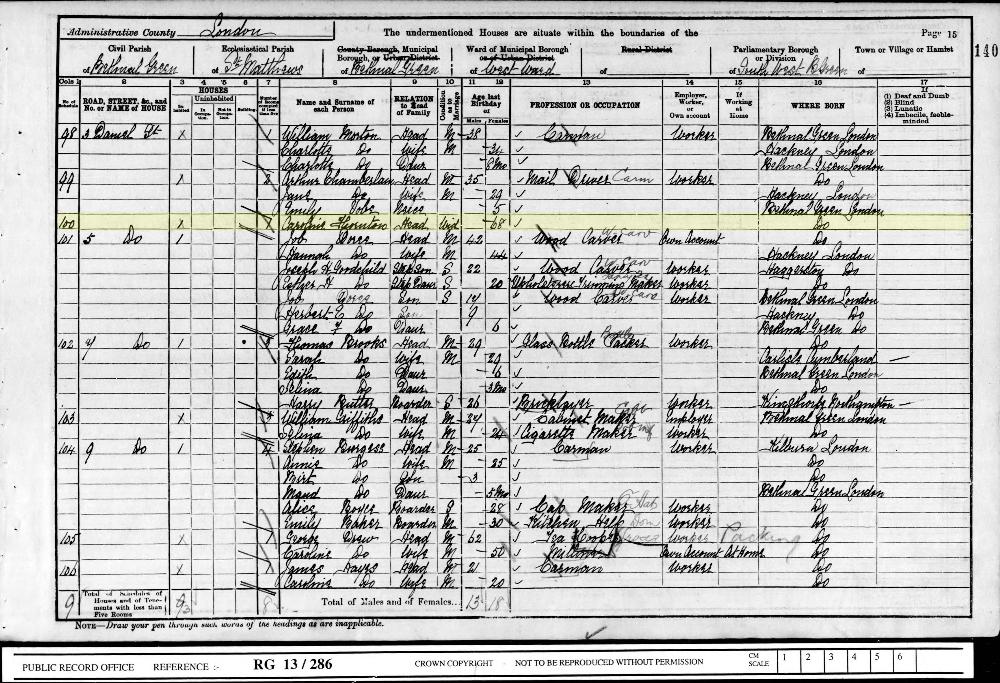 Administrative County London
The undermentioned Houses are situate within the boundaries of the
Page 15
140
Civil Parish
of Bethnal Green
Ecclesiastical Parish
of St Matthews
County Borough, Municipal Borough, or Urban District
of Bethnal Green
Ward of Municipal Borough or of Urban District
of West Ward
Rural District
of
Parliamentary Borough or Division
of South West B. Green
Town or Village or Hamlet
of
Cols 1 2 3 4 5 6 7 8 9 10 11 12 13 14 15 16 17
No. of Schedule
ROAD, STREET, &c., and No. or NAME of HOUSE
HOUSES
Inhabited
Uninhabited
In Occupation
Not in Occupation
Building
Name and Surname of each Person
RELATION to Head of Family
Condition as to Marriage
Age last Birthday of
Males Females
PROFESSION OR OCCUPATION
Employer, Worker, or Own account
If Working at Home
WHERE BORN
(1) Deaf and Dumb
(2) Blind
(3) Lunatic
(4) Imbecile, feeble-minded
98 3 Daniel St x 1 William Morton Head M 38 Carman Worker Bethnal Green London
Charlotte Do Wife M 34 Hackney London
Charlotte Do Daur 8 Mo Bethnal Green London
99 x 2 Arthur Chamberlain Head M 35 Mail Driver Carm Worker Do
Jane Do Wife M 29 Hackney London
Emily Niece 5 Bethnal Green London
100 x Caroline Thornton Head Wid 68 Do
101 5 Do 1 Job Head M 42 Wood Carver Own Account Do
Hannah Do Wife M 44 Hackney London
Joseph H Goodchild Step Son S 22 Wood Carver Worker Haggerston Do
Esther H Do Step Daur S 20 Upholsteress Trimming Maker Worker Do
Job Son S 14 Wood Carver Worker Bethnal Green London
Herbert E Do Son 9 Hackney Do
Grace F Do Daur 6 Bethnal Green Do
102 7 Do 1 Thomas Brooks Head M 29 Glass Bottle Packer Worker Do
Sarah Do Wife M 29 Carlisle Cumberland
Edith Do Daur 6 Bethnal Green London
Selina Do Daur 3 Mo Do
Harry Boarder S 26 Bricklayer Worker Kingsthorpe Northampton
103 x 4 William Griffiths Head M 24 Cabinet Maker Employer Bethnal Green London
Selina Do Wife M 24 Cigarette Maker Worker Do
104 9 Do 1 4 Stephen Burgess Head M 25 Carman Worker Kilburn London
Annie Do Wife M 25 Do
Bert Do Son 3 Do
Maud Do Daur 5 Mo Bethnal Green London
Alice Boyce Boarder S 28 Cap Maker Worker Do
Emily Baker Boarder M 30 Kitchen Help Dom Worker Do
105 x George Drew Head M 62 Tea Worker Packing Do
Caroline Do Wife M 50 Milliner Own Account At Home Do
106 x James Hayes Head M 21 Carman Worker Do
Caroline Do Wife M 20 Do
9 Total of Schedules of Houses and of Tenements with less than Five Rooms
Total of Males and of Females... 13 18
NOTE—Draw your pen through such words of the headings as are inapplicable.
PUBLIC RECORD OFFICE REFERENCE :- RG 13 / 286 CROWN COPYRIGHT - NOT TO BE REPRODUCED WITHOUT PERMISSION
CM SCALE 1 2 3 4 5 6